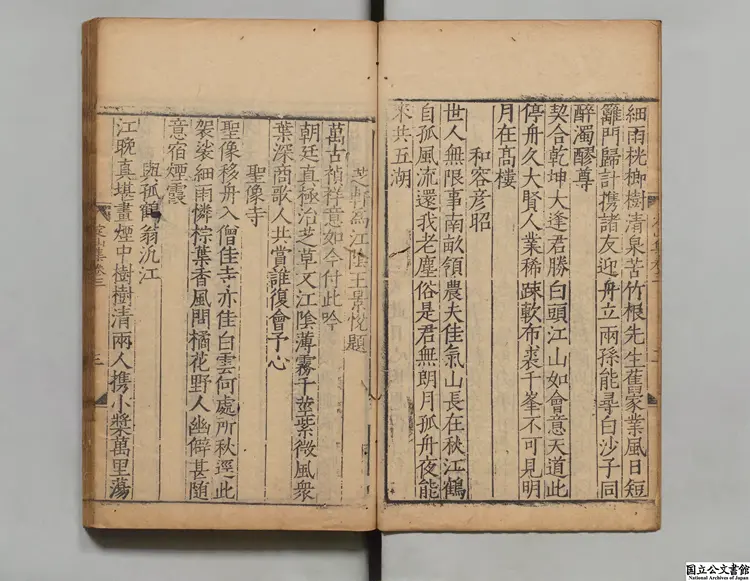 細雨桄榔樹清泉苦竹根先生舊家業風日短
籬門歸計携諸友迎舟立兩孫能尋白沙子同
醉濁醪尊
契合乾坤大逢君勝白頭江山如會意天道此
停舟久大賢人業稀踈軟布裘千峯不可見明
月在高樓
和容彥昭
世人無限事南畝領農夫佳氣山長在秋江鶴
自孤風流還我老塵俗是君無朗月孤舟夜能
來共五湖
為江陰王景悅題
萬古禎祥意如今付此吟
朝廷真極治芝草又江陰薄霧千莖紫微風衆
葉深商歌人共賞誰復會予心
聖像寺
聖像移舟入僧佳寺亦佳白雲何處所秋逕此
袈裟細雨憐棕葉香風問橘花野人幽僻甚随
意宿煙霞
與孤鶴翁汎江
江晚真堪畫煙中樹樹清兩人携小槳萬里蕩
山集卷三
三
国立公文書館
National Archives of Japan